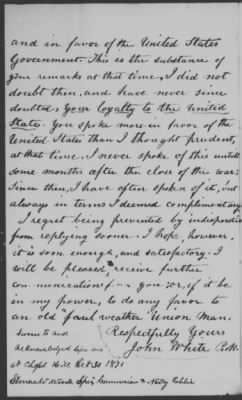 and in favor of the United States
Government. This is the substance of
your remarks at that time. I did not
doubt then, and have never since
doubted your loyalty to the United
States. You spoke more in favor of the
United States than I thought prudent,
at that time. I never spoke of this untill
some months after the close of the war:
Since then, I have often spoken of it, but
always in terms I deemed complimentary.
I regret being prevented by indisposition
from replying sooner. I hope, however,
it is soon enough, and satisfactory. I
will be pleased, receive further
communications from you: or, if it be
in my power, to do any favor to
an old "foul weather Union Man.
Sworn to and Respectfully Yours
acknowledged before me John White
at Chapel Hill Oct 30 1871